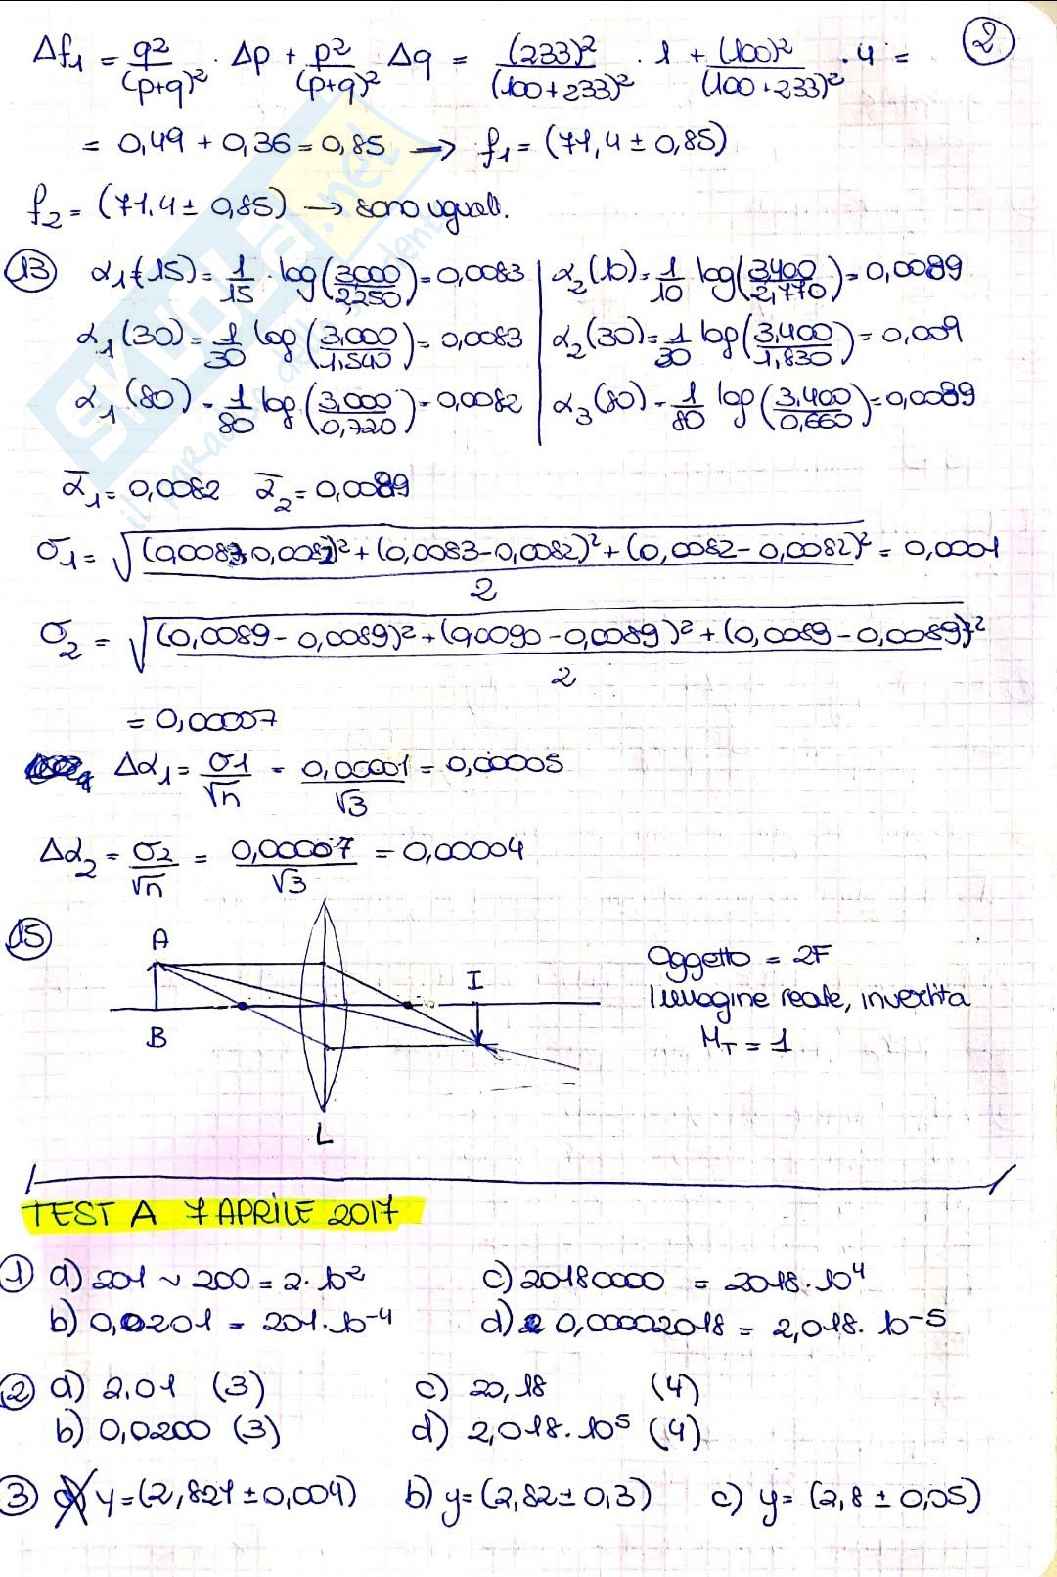 ②
Δf₁ = q²/(p+q)² · Δp + p²/(p+q)² · Δq = (233)²/(100+233)² · 1 + (100)²/(100+233)² · 4 =
= 0,49 + 0,36 = 0,85 → f₁ = (71,4 ± 0,85)
f₂ = (71,4 ± 0,85) → sono uguali.
⑬ α₁(15) = 1/15 · log(3,000/2,250) = 0,0083 | α₂(10) = 1/10 log(3,400/2,770) = 0,0089
α₁(30) = 1/30 log(3,000/1,540) = 0,0083 | α₂(30) = 1/30 log(3,400/1,830) = 0,009
α₁(80) = 1/80 log(3,000/0,720) = 0,0082 | α₃(80) = 1/80 log(3,400/0,660) = 0,0089
ᾱ₁ = 0,0082 ᾱ₂ = 0,0089
σ₁ = √((0,0083-0,0082)² + (0,0083-0,0082)² + (0,0082-0,0082)²/2) = 0,0001
σ₂ = √((0,0089-0,0089)² + (0,0090-0,0089)² + (0,0089-0,0089)²/2)
= 0,00007
Δα₁ = σ1/√n = 0,00001/√3 = 0,00005
Δα₂ = σ2/√n = 0,00007/√3 = 0,00004
⑮
A
B
L
I
Oggetto = 2F
Immagine reale, invertita
M_T = 1
TEST A 7 APRILE 2017
① a) 201 ~ 200 = 2·10² c) 20180000 = 2018·10⁴
b) 0,0201 = 201·10⁻⁴ d) 0,00002018 = 2,018·10⁻⁵
② a) 2,01 (3) c) 20,18 (4)
b) 0,0200 (3) d) 2,018·10⁵ (4)
③ a) y = (2,821 ± 0,004) b) y = (2,82 ± 0,3) c) y = (2,8 ± 0,05)
SKUOLA.net